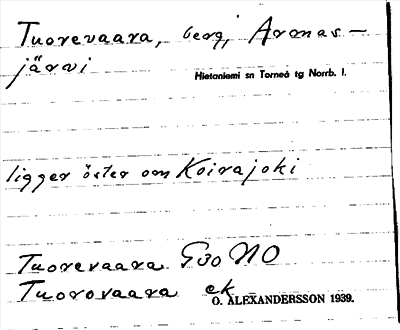 Tuorevaara, berg, Armas-
järvi
Hietaniemi sn Torneå tg Norrb. l.
ligger öster om Koirajoki
Tuorevaara G30 NO
Tuorovaara ek.
O. ALEXANDERSSON 1939.